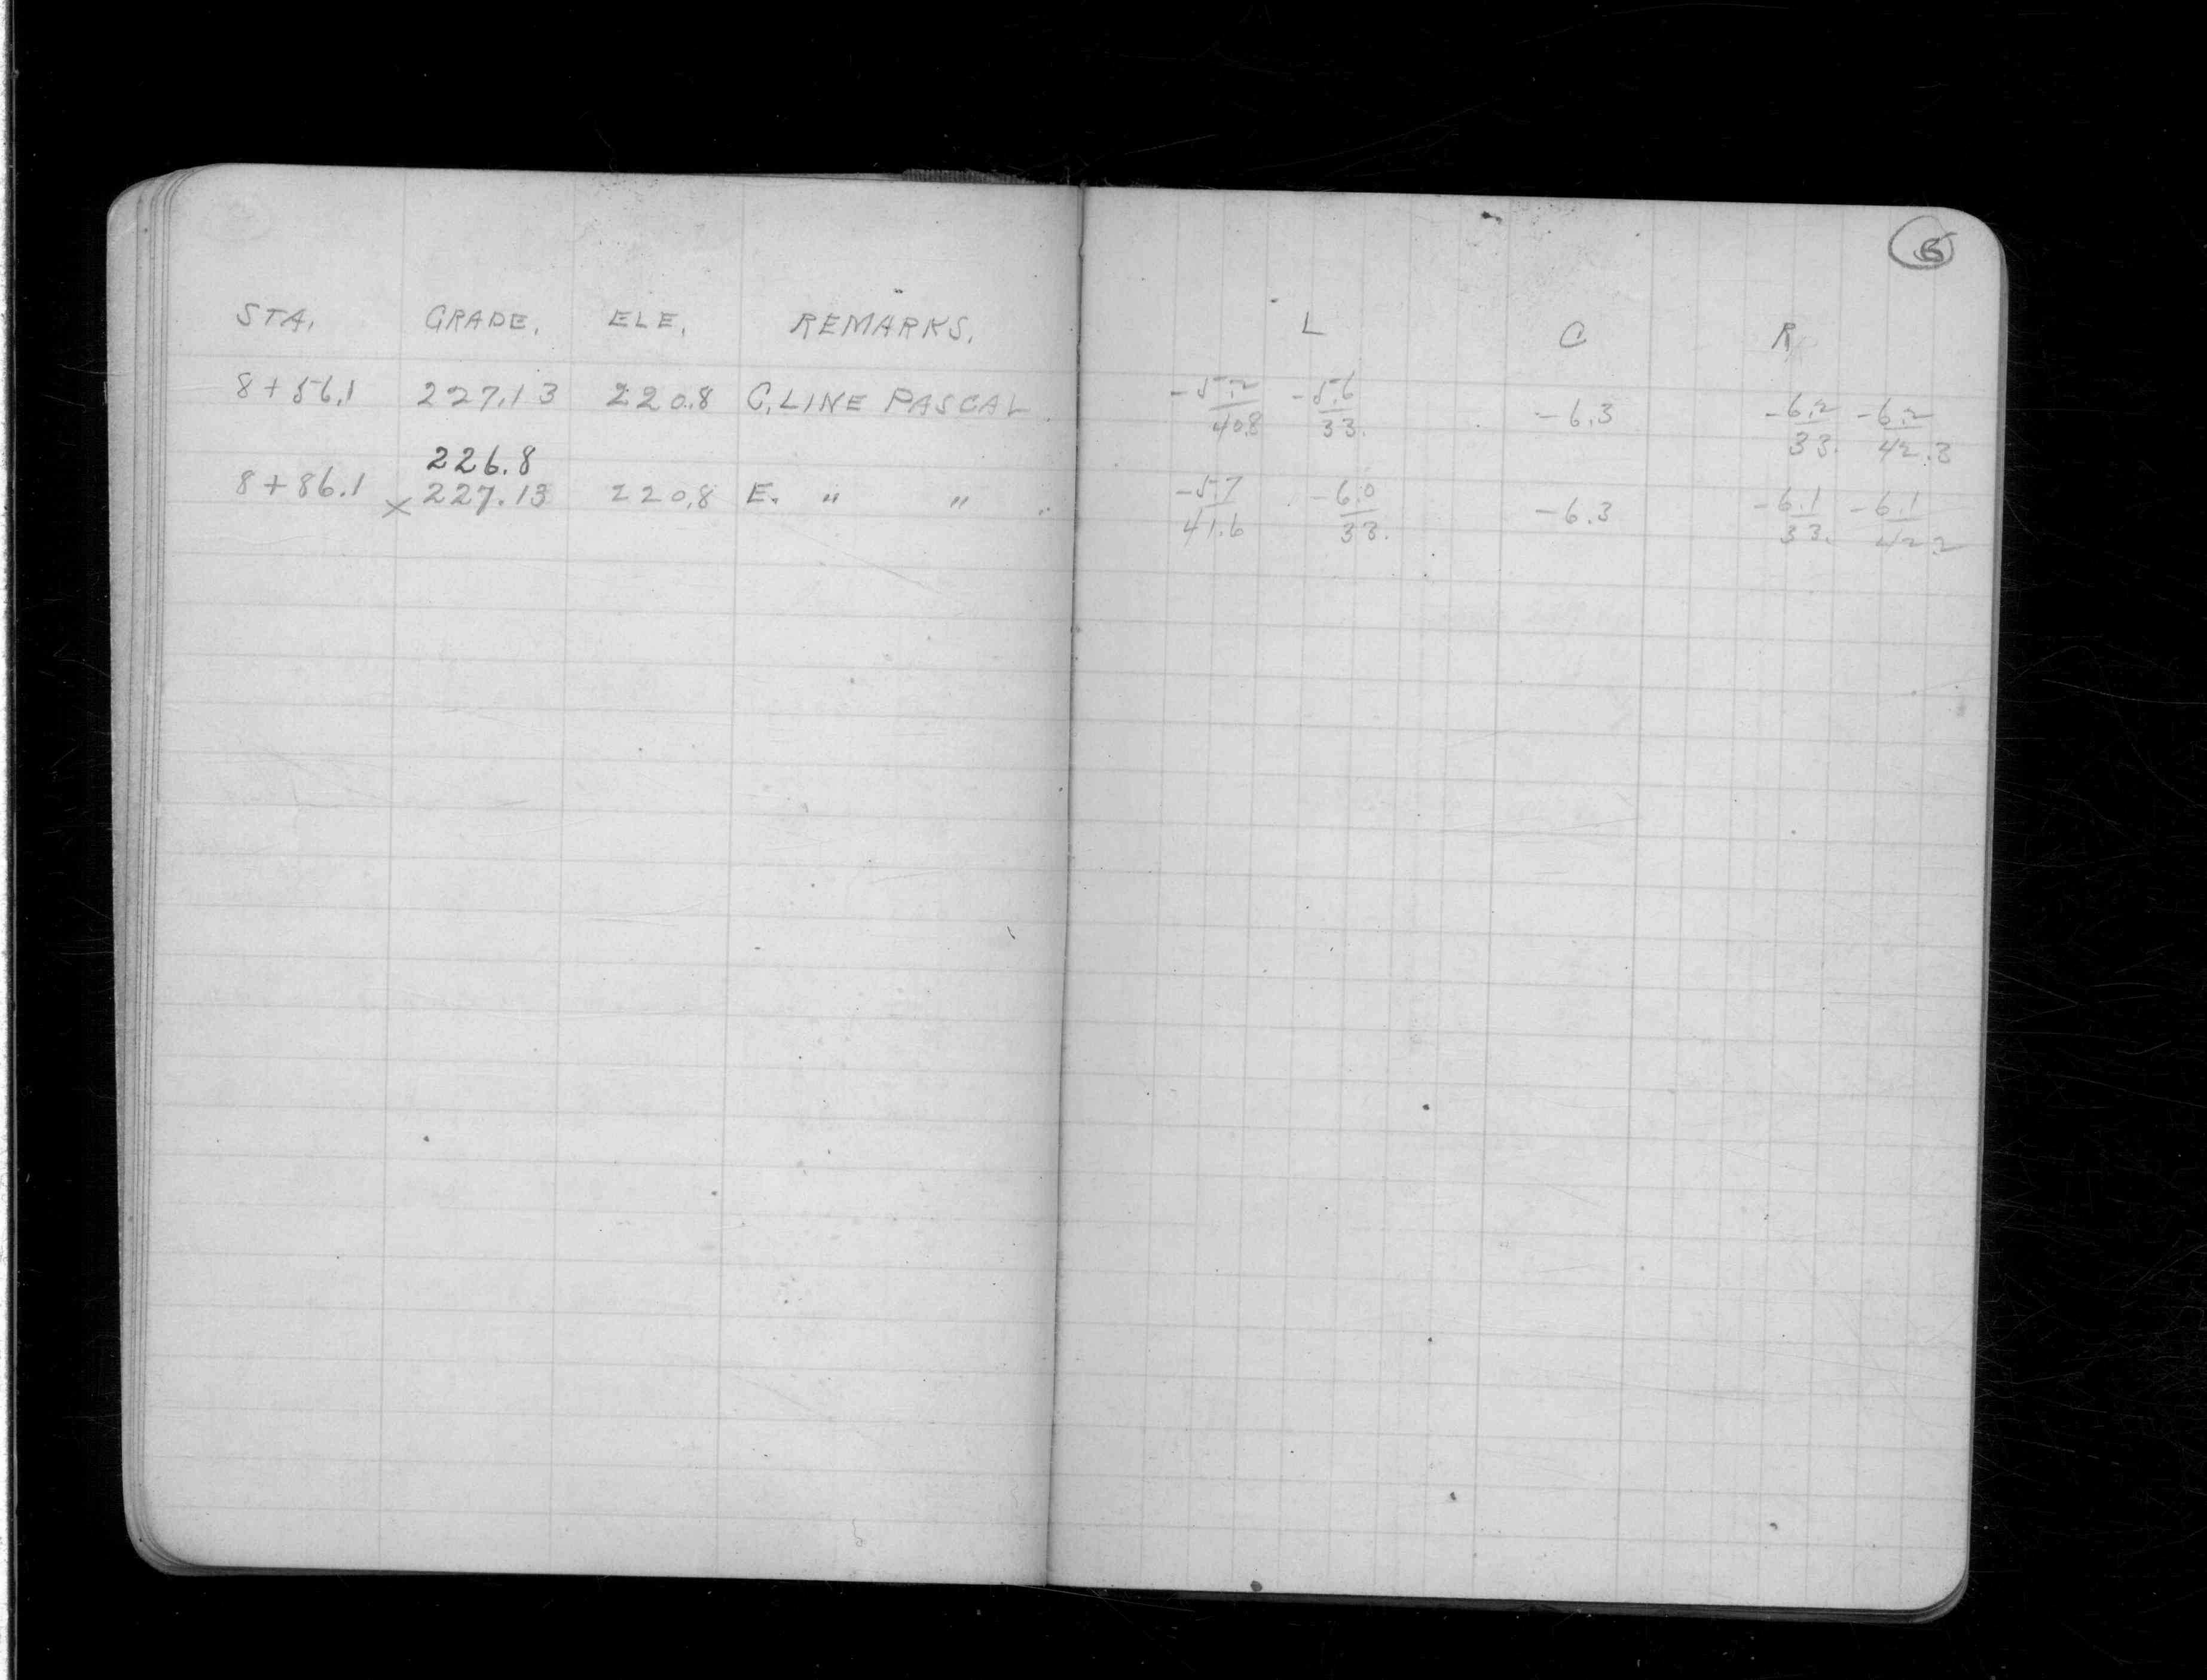 6
STA. GRADE. ELE. REMARKS. L C R
8+56.1 227.13 220.8 C.LINE PASCAL -5.2/40.8 -5.6/33. -6.3 -6.2/33. -6.2/42.3
226.8
8+86.1 x 227.13 220.8 E. " " -5.7/41.6 -6.0/33. -6.3 -6.1/33. -6.1/42.2